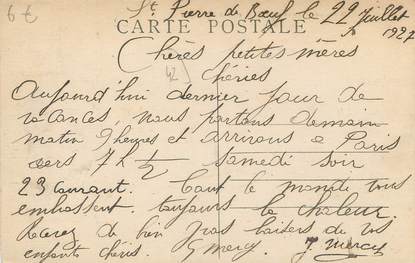 6€
St Pierre de Bœuf le 22 Juillet
1922
CARTE POSTALE
Chères petites mères
42
chéries
Aujourd'hui dernier jour de
vacances, nous partons demain
matin 9 heures et arrivons à Paris
vers 7h ½ samedi soir
23 courant. Tout le monde vous
embrassent. toujours la chaleur.
Recevez de bien gros baisers de vos
enfants chéris. G Mercy J. Mercy